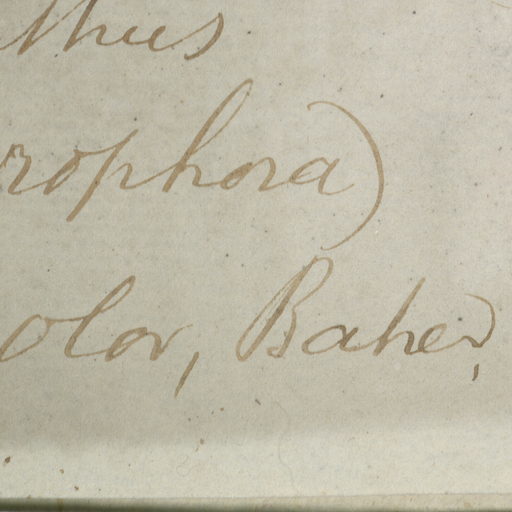 thus
rophora)
olor, Baker,